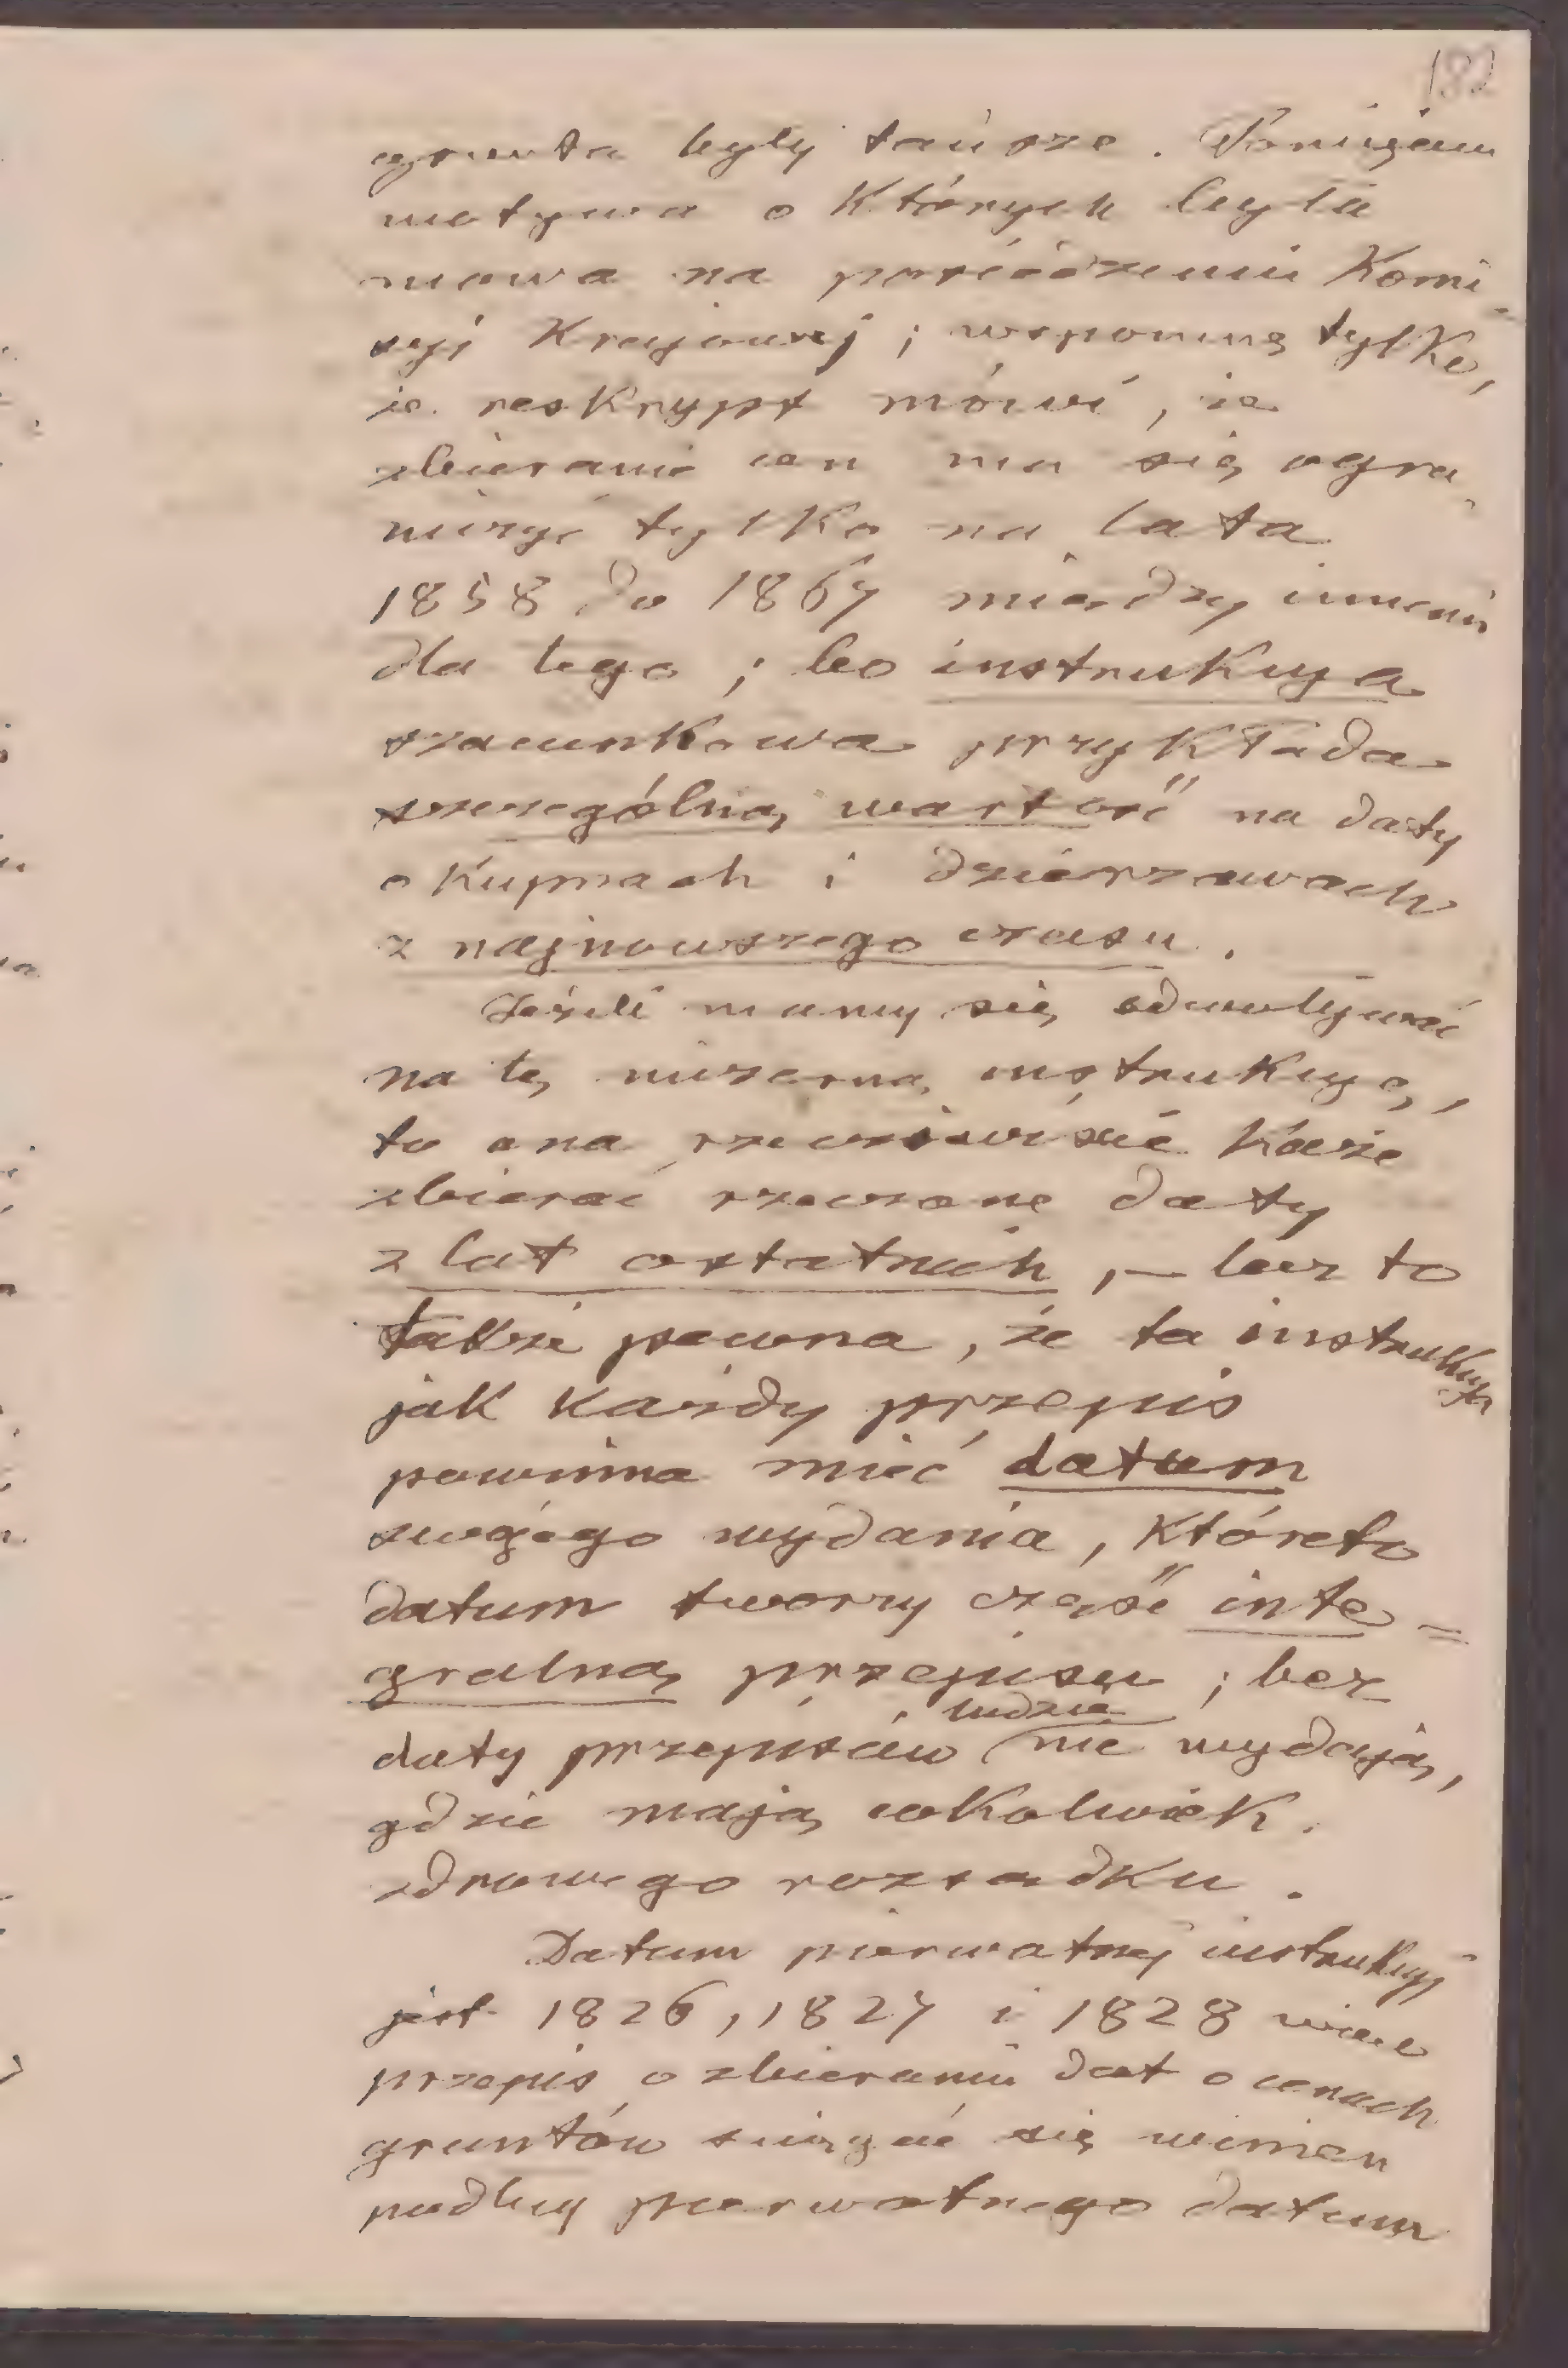 182
grunta były tańsze. Pomijam
motywa o których była
mowa na posiedzeniu Komi-
syi Krajowej; wspomnę tylko,
że reskrypt mówi, że
zbieranie cen ma się ogra-
niczyć tylko na lata
1858 do 1867 miedzy innemi
dla tego; bo instrukcya
szacunkowa przykłada
szczególną wartość na daty
o kupnach i dzierzawach
z najnowszego czasu.
Jeżeli mamy się odwoływać
na tę mizerną instrukcyę,
to ona rzeczewiscie każe
zbierać rzeczone daty
z lat ostatnich, — lecz to
także pewna, że ta instrukcya
jak każdy przepis
powinna mieć datum
swojego wydania, któreto
datum tworzy część inte=
gralną przepisu; bez
daty przepisów ludzie nie wydają,
gdzie mają cokolwiek
zdrowego rozsądku.
Datum pierwotnej instrukcyj
jest 1826, 1827 i 1828 wiec
przepis o zbieraniu dat o cenach
gruntów ściągać się winien
podług pierwotnego datum